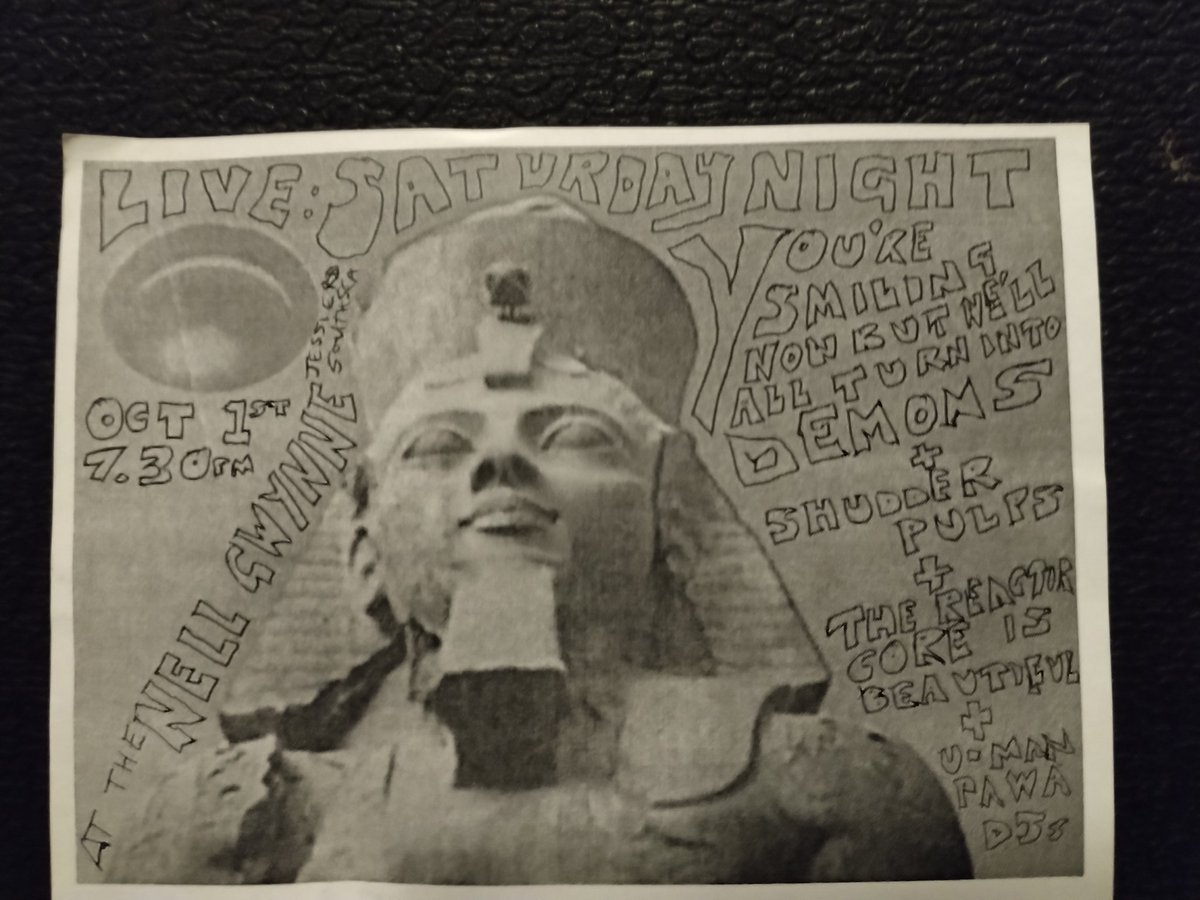 LIVE: SATURDAY NIGHT
OCT 1ST
7.30PM
AT THE NELL GWYNNE
YOU'RE
SMILING
NOW BUT WE'LL
ALL TURN INTO
DEMONS
+
SHUDDER
PULPS
+
THE REACTOR
CORE IS
BEAUTIFUL
+
U-MAN
PAWA
DJs